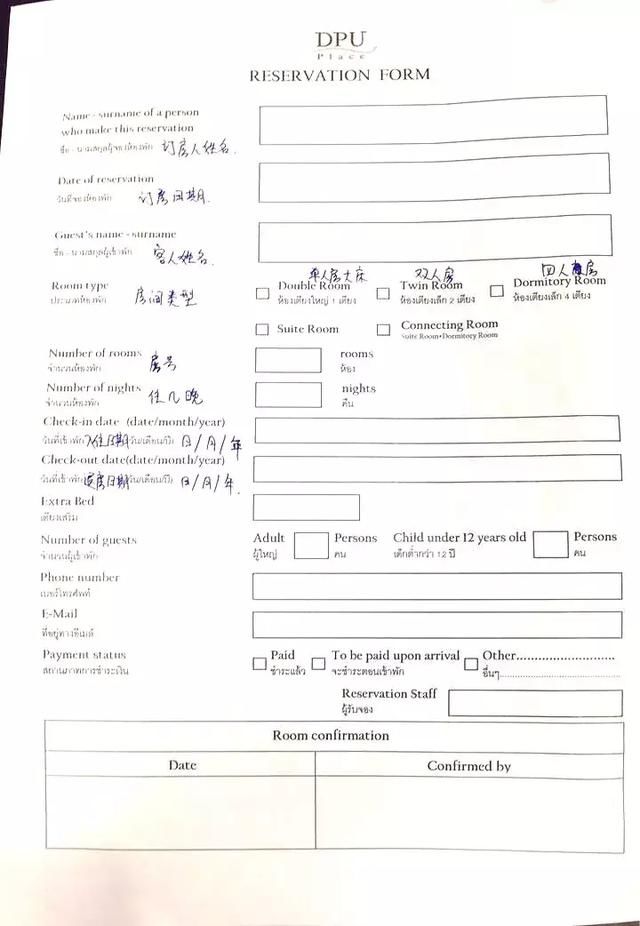 DPU
Place
RESERVATION FORM
Name - surname of a person
who make this reservation
ชื่อ - นามสกุลผู้จองห้องพัก 订房人姓名.
Date of reservation
วันที่จองห้องพัก 订房日期.
Guest's name - surname
ชื่อ - นามสกุลผู้เข้าพัก 客人姓名.
单人房大床 双人房 四人房
Room type Double Room Twin Room Dormitory Room
ประเภทห้องพัก 房间类型 ห้องเตียงใหญ่ 1 เตียง ห้องเตียงเล็ก 2 เตียง ห้องเตียงเล็ก 4 เตียง
Suite Room Connecting Room
Suite Room+Dormitory Room
Number of rooms rooms
จำนวนห้องพัก 房号 ห้อง
Number of nights nights
จำนวนห้องพัก 住几晚 คืน
Check-in date (date/month/year)
วันที่เข้าพัก 入住日期 วัน/เดือน/ปี) 日/月/年
Check-out date(date/month/year)
วันที่เข้าพัก 退房日期 วัน/เดือน/ปี) 日/月/年.
Extra Bed
เตียงเสริม
Number of guests Adult Persons Child under 12 years old Persons
จำนวนผู้เข้าพัก ผู้ใหญ่ คน เด็กต่ำกว่า 12 ปี คน
Phone number
เบอร์โทรศัพท์
E-Mail
ที่อยู่ทางอีเมล์
Payment status Paid To be paid upon arrival Other............................
สถานภาพการชำระเงิน ชำระแล้ว จะชำระตอนเข้าพัก อื่นๆ..................................
Reservation Staff
ผู้รับจอง
Room confirmation
Date Confirmed by